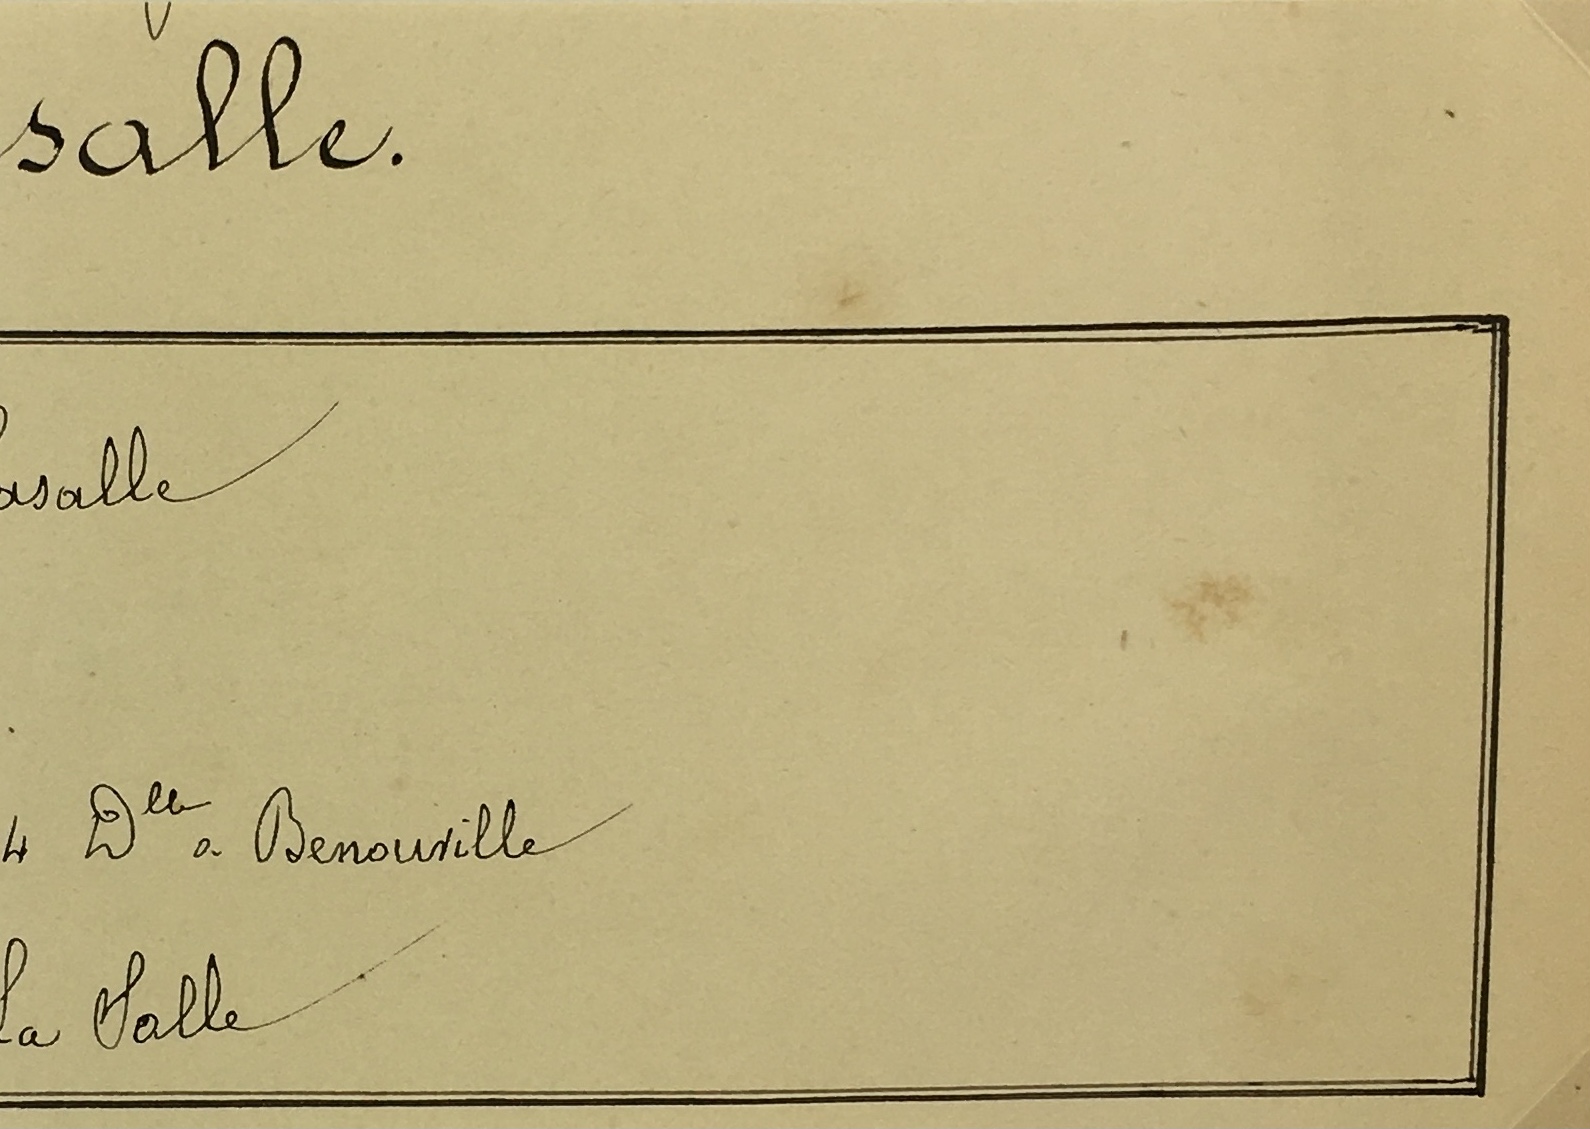 salle.
asalle
4 Dlle a Benouville
La Salle